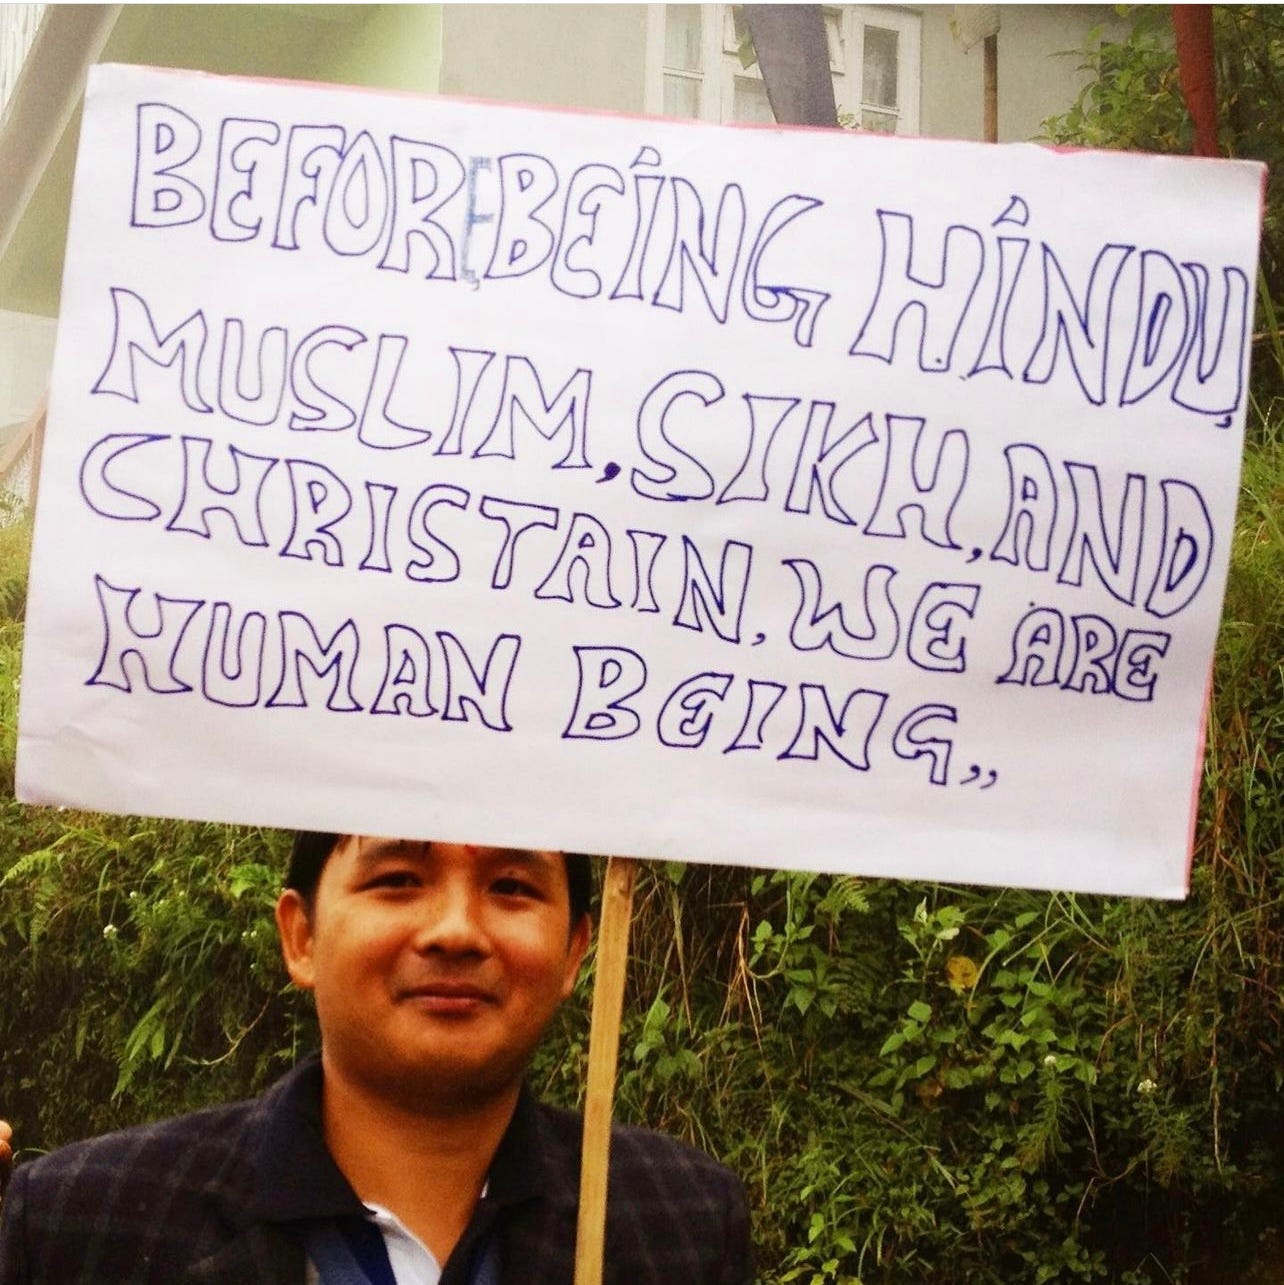 BEFORE BEING HINDU,
MUSLIM, SIKH, AND
CHRISTAIN, WE ARE
HUMAN BEING,,